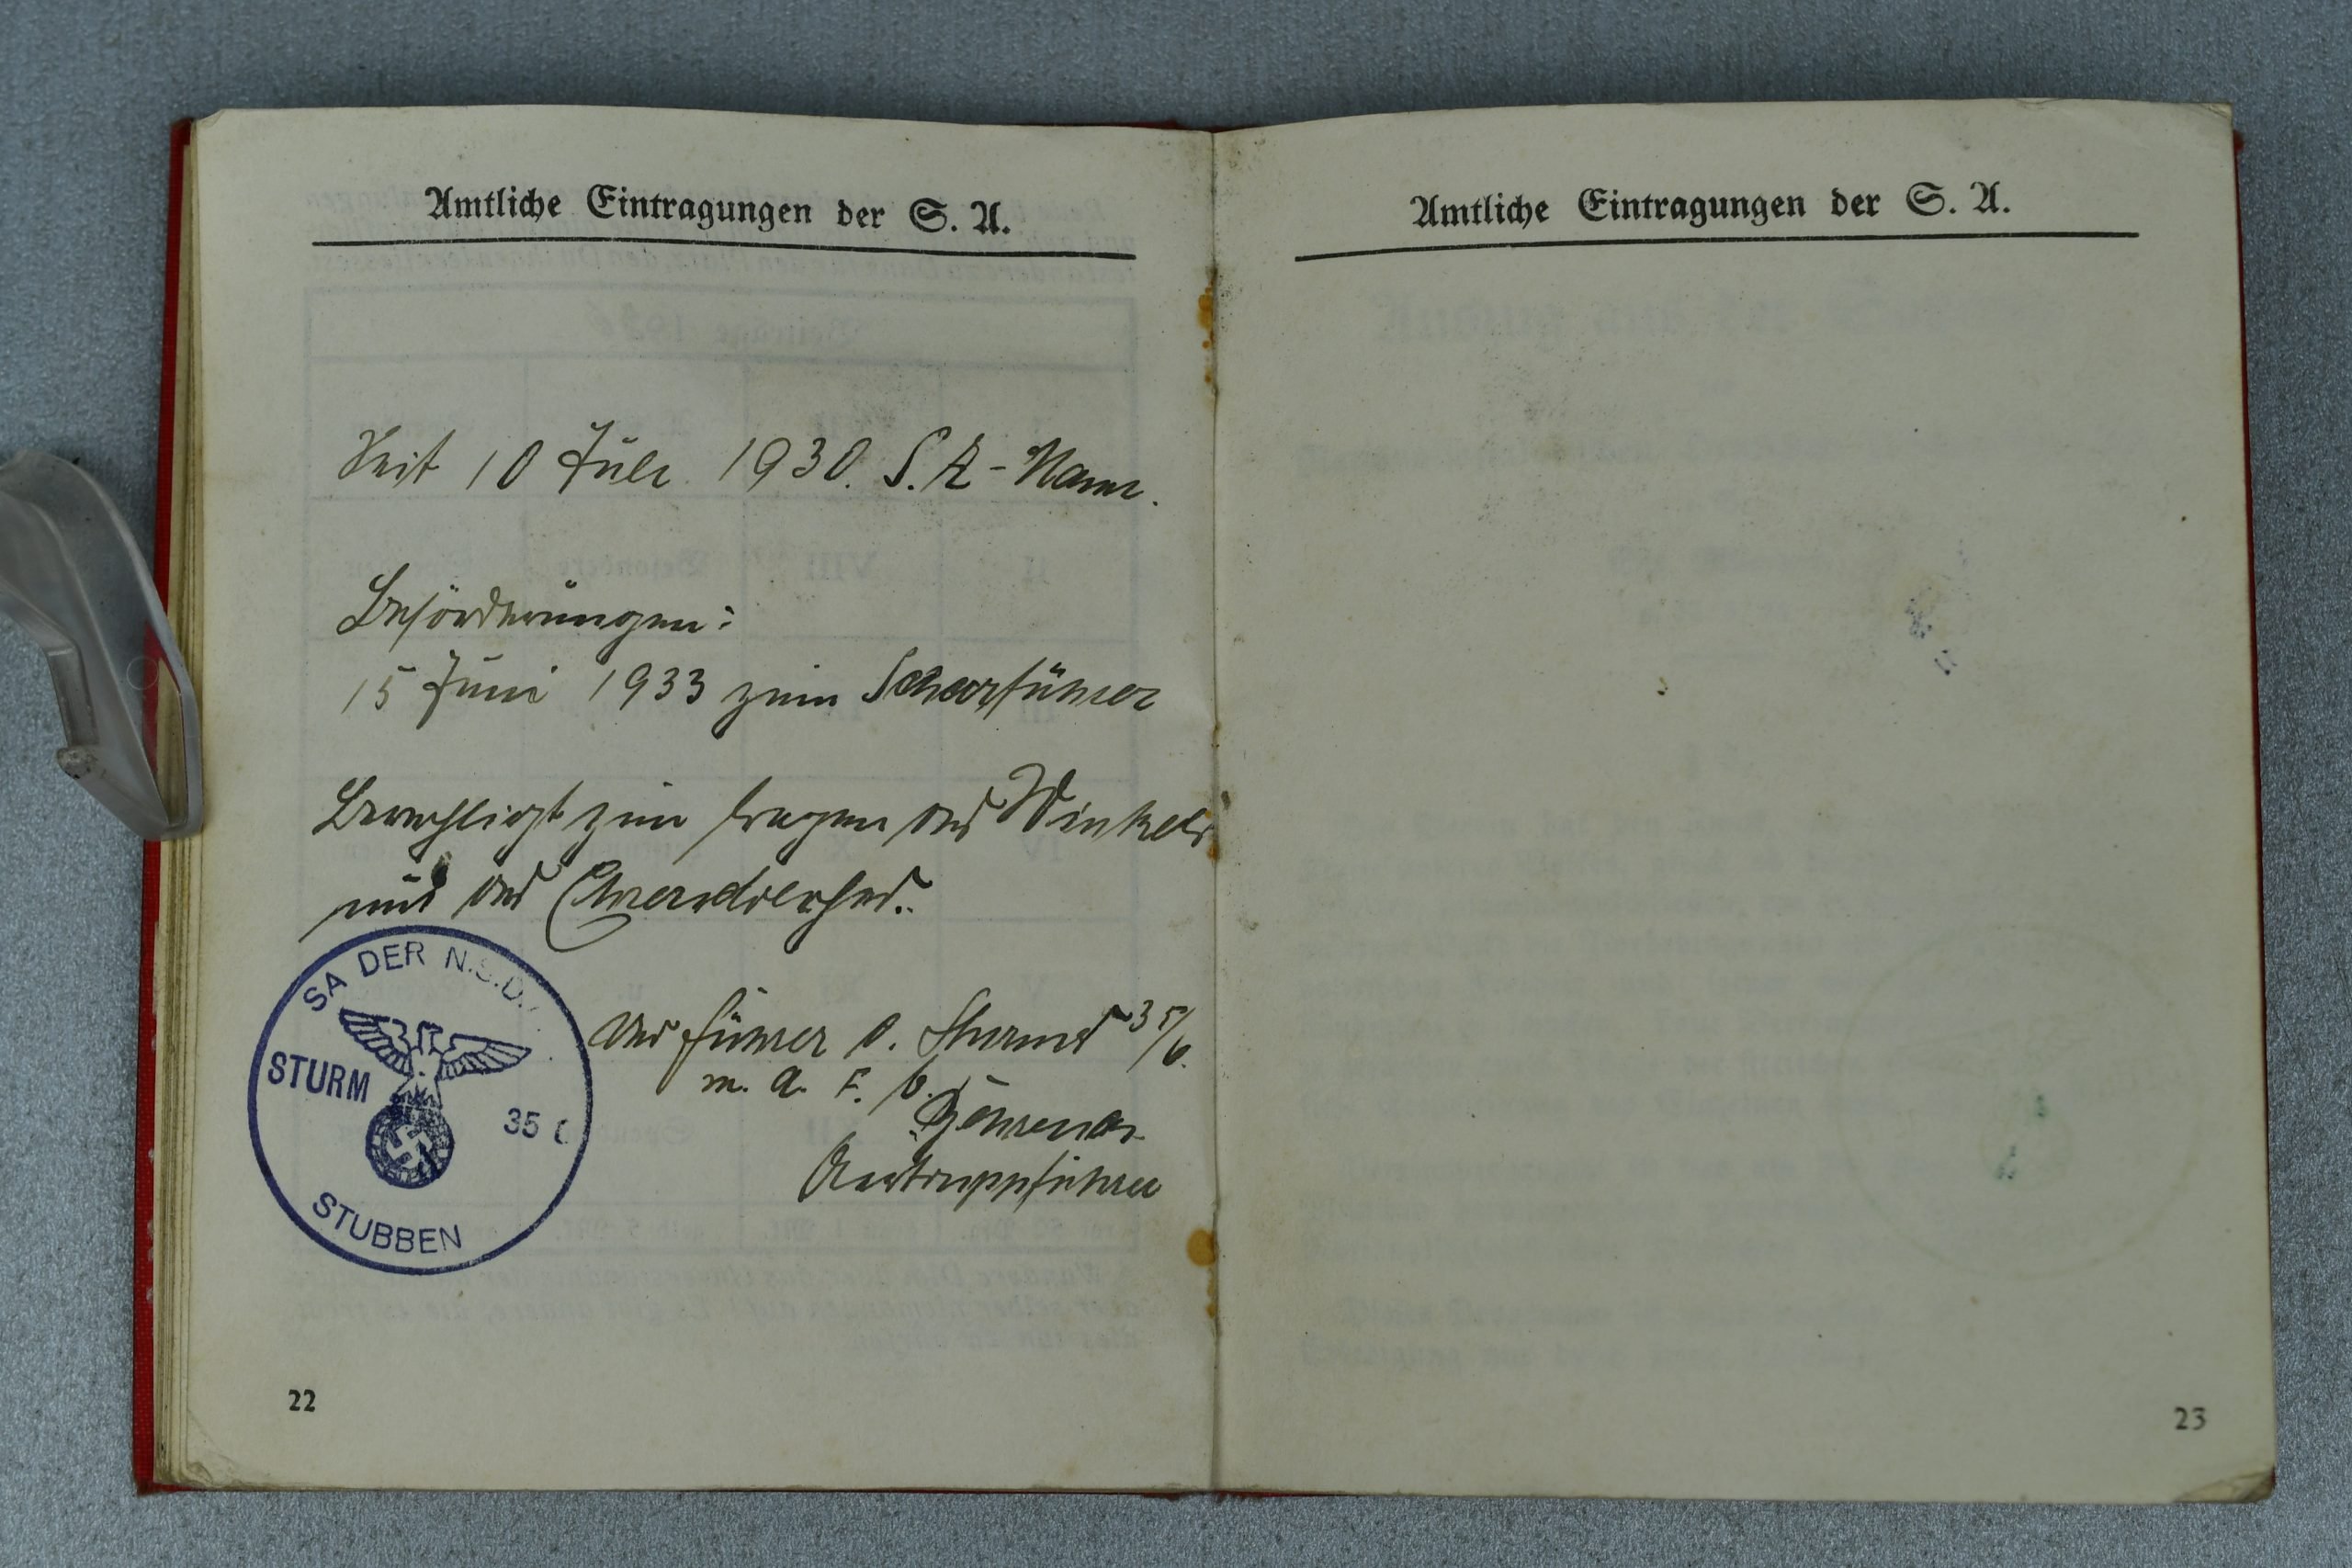 Amtliche Eintragungen der S. A.
Seit 10 Juli 1930. S.A-Mann.
Beförderungen:
15 Juni 1933 zum Scharführer
Berechtigt zum tragen des Winkels
und des Ehrendolches.
SA DER N.S.D.
STURM
35
STUBBEN
Der Führer d. Sturmes 35/6.
m. d. F. b.
22
Amtliche Eintragungen der S. A.
23